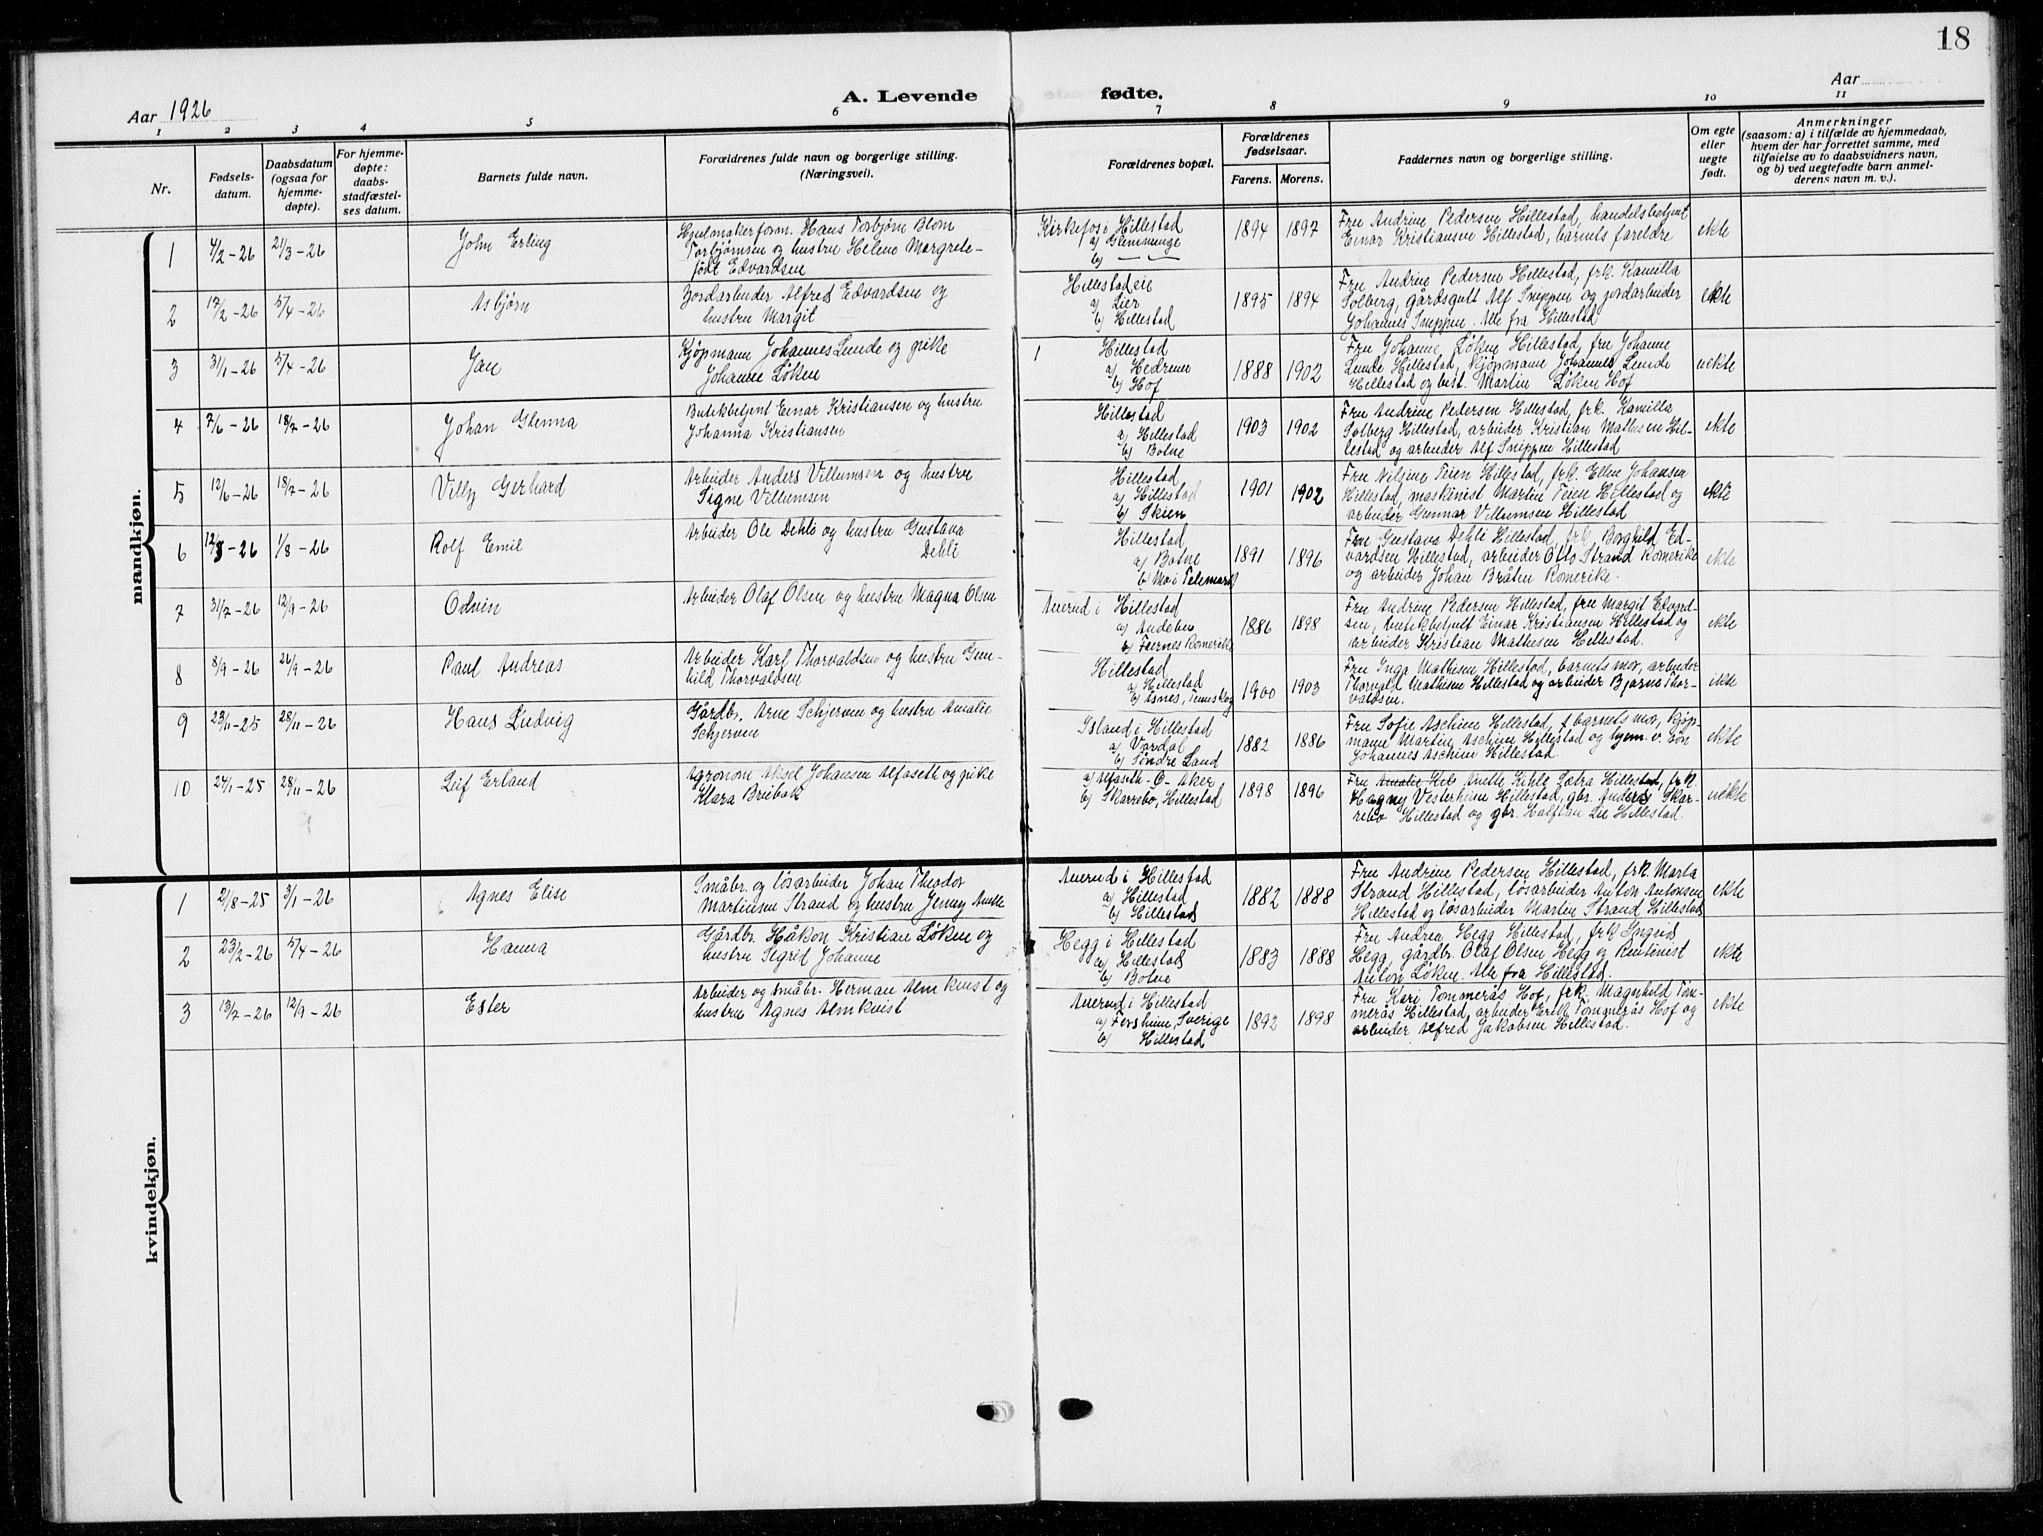 18
Aar 1926
A. Levende fødte.
Aar
1 2 3 4 5 6 7 8 9 10 11
Nr.
Fødsels-
datum.
Daabsdatum
(ogsaa for
hjemme-
døpte).
For hjemme-
døpte:
daabs-
stadfæstel-
ses datum.
Barnets fulde navn.
Forældrenes fulde navn og borgerlige stilling.
(Næringsvei).
Forældrenes bopæl.
Forældrenes
fødselsaar.
Farens. Morens.
Faddernes navn og borgerlige stilling.
Om egte
eller
uegte
født.
Anmerkninger
(saasom: a) i tilfælde av hjemmedaab,
hvem der har forrettet samme, med
tilføielse av to daabsvidners navn,
og b) ved uegtefødte barn anmel-
derens navn m. v.).
mandkjøn.
1 4/2-26 21/3-26 John Erling
Hjulmakerform. Hans Torbjørn Blom
Torbjørnsen og hustru Helene Margrete
født Edvardsen
Kirkefos i Hillestad
a) Glemminge
b) — —
1894 1897
Fru Andrine Pedersen Hillestad, handelsbetjent
Einar Kristiansen Hillestad, barnets foreldre
ekte
2 17/2-26 5/4-26 Asbjørn
Jordarbeider Alfred Edvardsen og
hustru Margit
Hillestadeie
a) Lier
b) Hillestad
1895 1894
Fru Andrine Pedersen Hillestad, frk. Kamilla
Solberg, gårdsgutt Alf Snippen og jordarbeider
Johannes Snippen. Alle fra Hillestad
ekte
3 31/1-26 5/4-26 Jan
Kjøpmann Johannes Lunde og pike
Johanne Løken
1 Hillestad
a) Hedrum
b) Hof
1888 1902
Fru Johanne Løken Hillestad, fru Johanne
Lunde Hillestad, kjøpmann Johannes Lunde
Hillestad og best. Martin Løken Hof
uekte
4 7/6-26 18/7-26 Johan Glenna
Butikbetjent Einar Kristiansen og hustru
Johanna Kristiansen
Hillestad
a) Hillestad
b) Botne
1903 1902
Fru Andrine Pedersen Hillestad, frk. Kamilla
Solberg Hillestad, arbeider Kristian Mathisen Hil-
lestad og arbeider Alf Snippen Hillestad
ekte
5 12/6-26 18/7-26 Villy Gerhard
Arbeider Anders Villumsen og hustru
Signe Villumsen
Hillestad
a) Hillestad
b) Skien
1901 1902
Fru Nilsine Teien Hillestad, frk. Ellen Johansen
Hillestad, maskinist Martin Teien Hillestad og
arbeider Gunnar Villumsen Hillestad
ekte
6 -26 1/8-26 Rolf Emil
Arbeider Ole Dehli og hustru Gustava
Dehli
Hillestad
a) Botne
b) Mo i Telemark
1891 1896
Fru Gustava Dehli Hillestad, frk. Borghild Ed-
vardsen Hillestad, arbeider Otto Strand Romerike
og arbeider Johan Bråten Romerike.
ekte
7 31/7-26 12/9-26 Odvin
Arbeider Olaf Olsen og hustru Magna Olsen
Auerud i Hillestad
a) Andebu
b) Romerike
1886 1898
Fru Andrine Pedersen Hillestad, fru Margit Edvard-
sen, butikbetjent Einar Kristiansen Hillestad og
arbeider Kristian Mathesen Hillestad.
ekte
8 8/9-26 26/9-26 Paul Andreas
Arbeider Karl Thorvaldsen og hustru Gun-
hild Thorvaldsen
Hillestad
a) Hillestad
b) Åsnes,
1900 1903
Fru Inga Mathisen Hillestad, barnets mor, arbeider
Thorvald Mathisen Hillestad og arbeider Bjarne Thor-
valdsen.
ekte
9 23/11-25 28/11-26 Hans Ludvig
Gårdbr. Arne Schjerven og hustru Amalie
Schjerven
Island i Hillestad
a) Vardal
b) Søndre Land
1882 1886
Fru Sofie Aschim Hillestad, barnets mor, kjøp-
mann Martin Aschim Hillestad og hjem. v. søn
Johannes Aschim Hillestad
ekte
10 24/1-25 28/11-26 Leif Erland
Agronom Aksel Johansen Alfaseth og pike
Klara Brubak
a) Alfaseth - Ø - Aker
b) Skarrebo, Hillestad
1898 1896
Fru Anette Kihle Sætra Hillestad, frk.
Hagny Vesterheim Hillestad, gbr. Anders Skar-
rebo Hillestad og gbr. Halfdan Lie Hillestad.
uekte
kvindekjøn.
1 21/8-25 3/1-26 Agnes Elise
Småbr. og løsarbeider Johan Theodor
Martinsen Strand og hustru Jenny
Auerud i Hillestad
a) Hillestad
b) Hillestad
1882 1888
Fru Andrine Pedersen Hillestad, frk. Marta
Strand Hillestad, løsarbeider Anton Antonsen
Hillestad og løsarbeider Martin Strand Hillestad
ekte
2 23/2-26 5/4-26 Hanna
Gårdbr. Håkon Kristian Løken og
hustru Sigrid Johanne
Hegg i Hillestad
a) Hillestad
b) Botne
1883 1888
Fru Andrea Hegg Hillestad, frk Ingrid
Hegg, gårdbr. Olaf Olsen Hegg og Rutinist
Anton Løken. Alle fra Hillestad.
ekte
3 13/7-26 12/9-26 Ester
Arbeider og småbr. Herman Almkvist og
hustru Agnes Almkvist
Auerud i Hillestad
a) Sverige
b) Hillestad
1892 1898
Fru Kari Tommerås Hof, frk. Magnhild Tom-
merås Hillestad, arbeider Erik Tommerås Hof og
arbeider Alfred Jakobsen Hillestad.
ekte